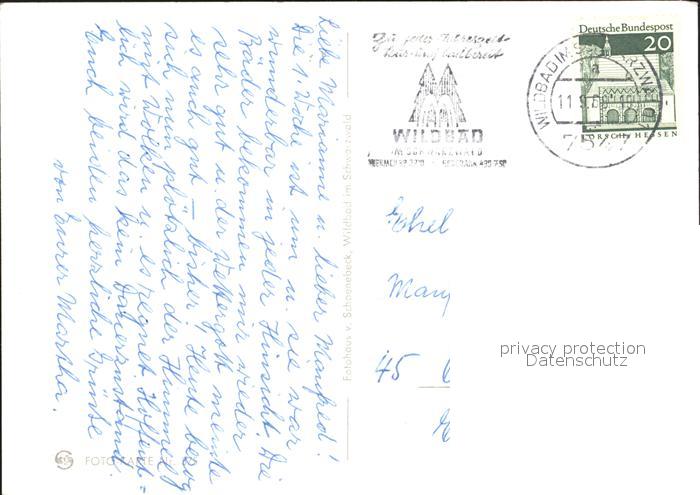 Liebe Marianne u. lieber Manfred!
Die 1. Woche ist um u. sie war
wunderbar in jeder Hinsicht. Die
Bäder bekommen mir wieder
sehr gut u. der Wettergott meinte
es auch gut – bisher. Heute bezog
sich nun plötzlich der Himmel
mit Wolken u. es regnet. Hoffent=
lich wird das kein Dauerzustand.
Euch beiden herzliche Grüße
von Eurer Martha.
Fotohaus v. Schoenebeck, Wildbad im Schwarzwald
FOTO
Zu jeder Jahreszeit
WILDBAD
IM SCHWARZWALD
Deutsche Bundespost
20
LORSCH / HESSEN
WILDBAD IM SCHWARZWALD
a
7547
Ehel
Man
45
privacy protection
Datenschutz